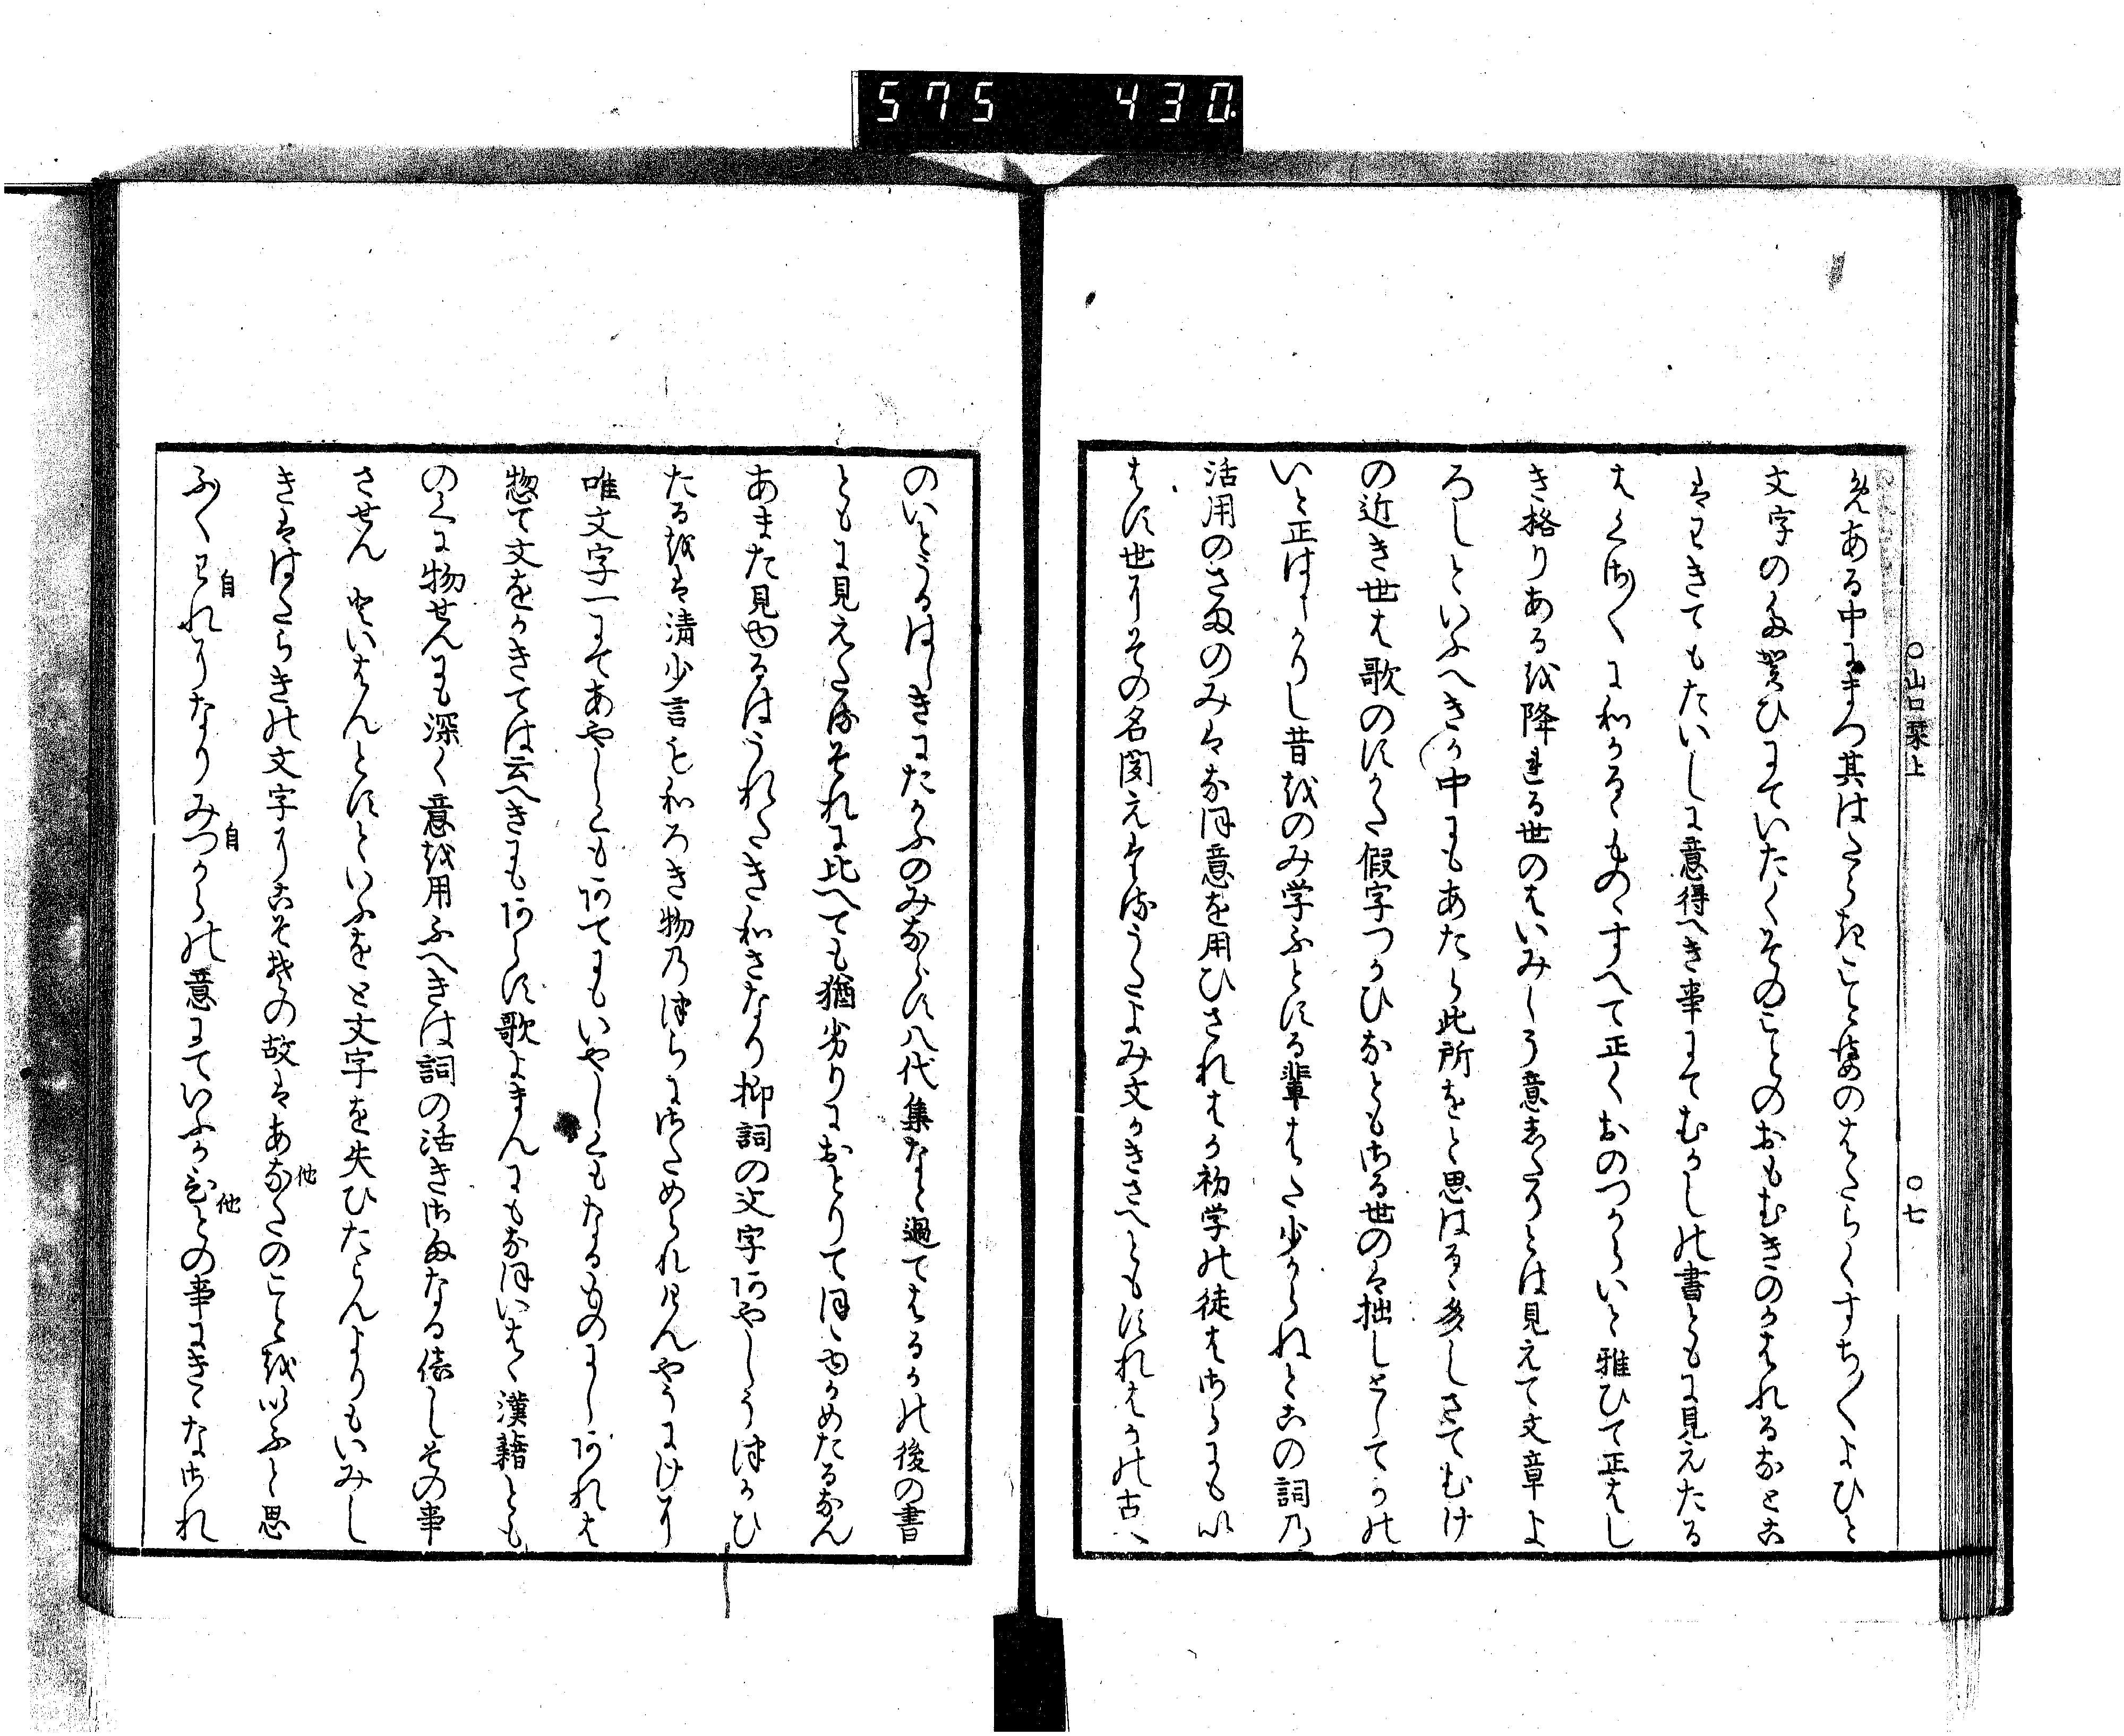 575 430
〇山口栞上
〇七
免ある中にまつ其はたらきことばのはたらくすち〳〵よひと
文字のたかひにていたくそのことのおもむきのかはれるなとこ
はわきてもたいしに意得へき事にてむかしの書ともに見えたる
はくさ〳〵にわかるゝものゝすへて正くおのつからいと雅ひて正はし
き格りあるを降れる世のはいみしう意志たりとは見えて文章よ
ろしといふへきか中にもあたら此所をと思はるゝ多しさてむけ
の近き世は歌のにかた假字つかひなともある世のは拙しとしてかの
いと正はしかりし昔をのみ学ふとする輩はた少からねとこの詞の
活用のさまのみはなほ意を用ひされはか初学の徒はさらにもい
はす世にその名聞えたるうたよみ文かきさへともすれはかの古へ
のいとうるはしきにたかふのみならす八代集なと過てはるかの後の書
ともに見えたるそれに比へても猶劣りにおとりてほゝゆかめたるなん
あまた見ゆるはうれたきわさなり抑詞の文字あやしうつかひ
たるをは清少言もわろき物のつらにさためられけんやうにけに
唯文字一にてあやしくもあてにもいやしくもなるものにしあれは
惣て文をかきては云へきにもあらす歌よまんにもなほいはゝ漢籍とも
のくに物せんにも深く意を用ふへきは詞の活きさまなる儀しその事
させんといはんとすといふをと文字を失ひたらんよりもいみし
きははたらきの文字にこそその故はあなたのことをいふと思
ふ〳〵われになりみつからの意にていふかひとの事にきこなされ
自
自
他
他